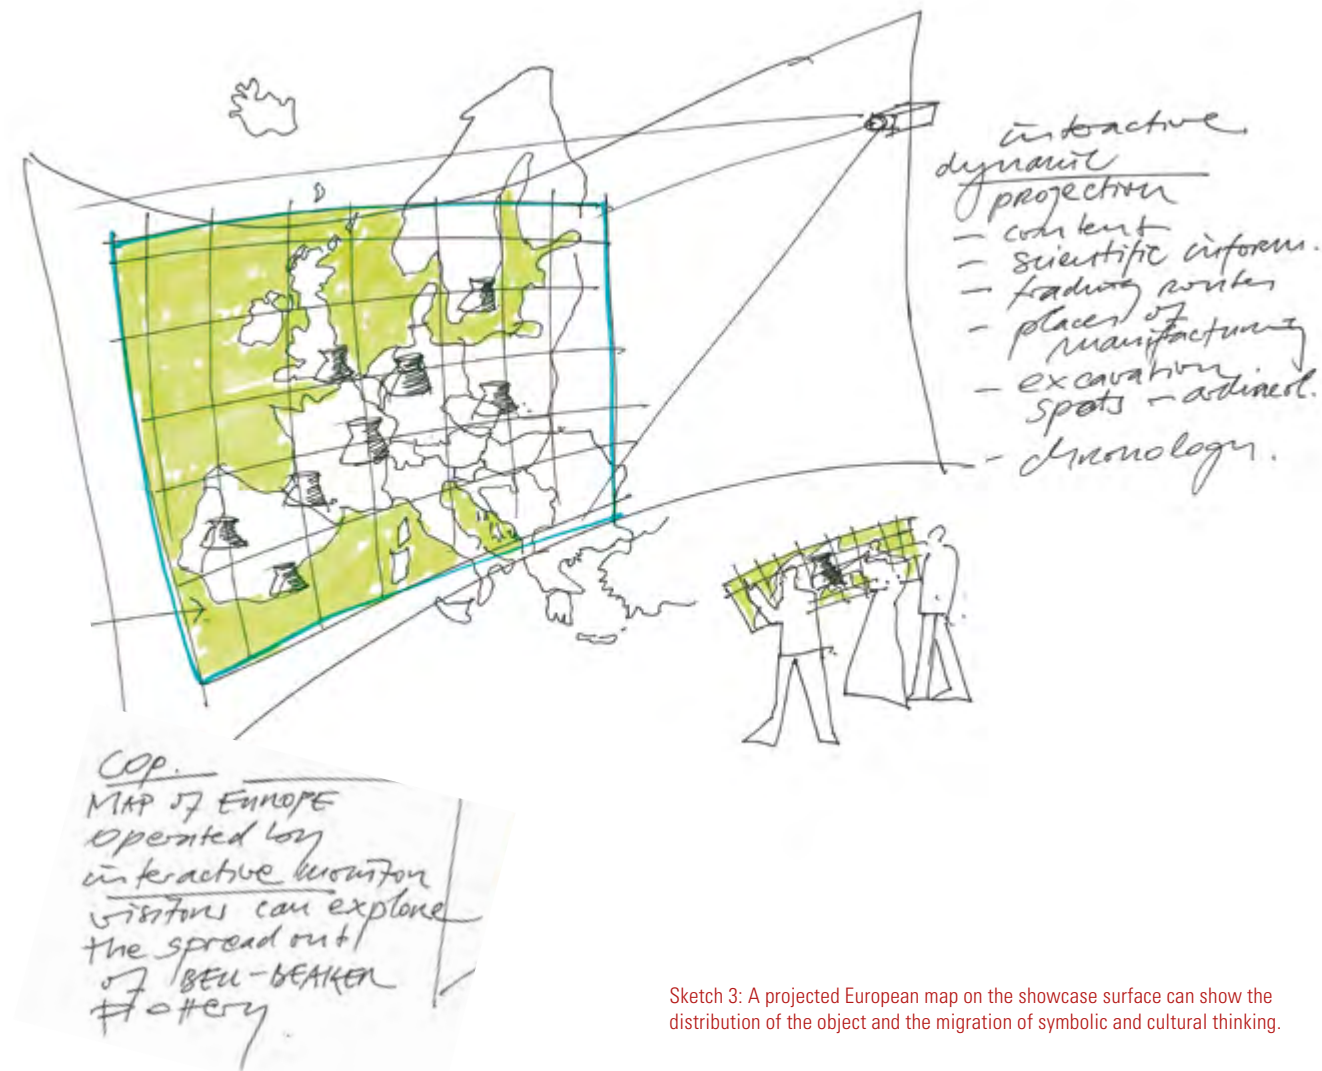 interactive
dynamic
projection
- content
- scientific inform.
- trading routes
- places of
manufacturing
- excavation
spots -
- chronology.
COP.
MAP of EUROPE
operated by
interactive monitor
visitors can explore
the spread out
of BELL-BEAKER
pottery.
Sketch 3: A projected European map on the showcase surface can show the
distribution of the object and the migration of symbolic and cultural thinking.